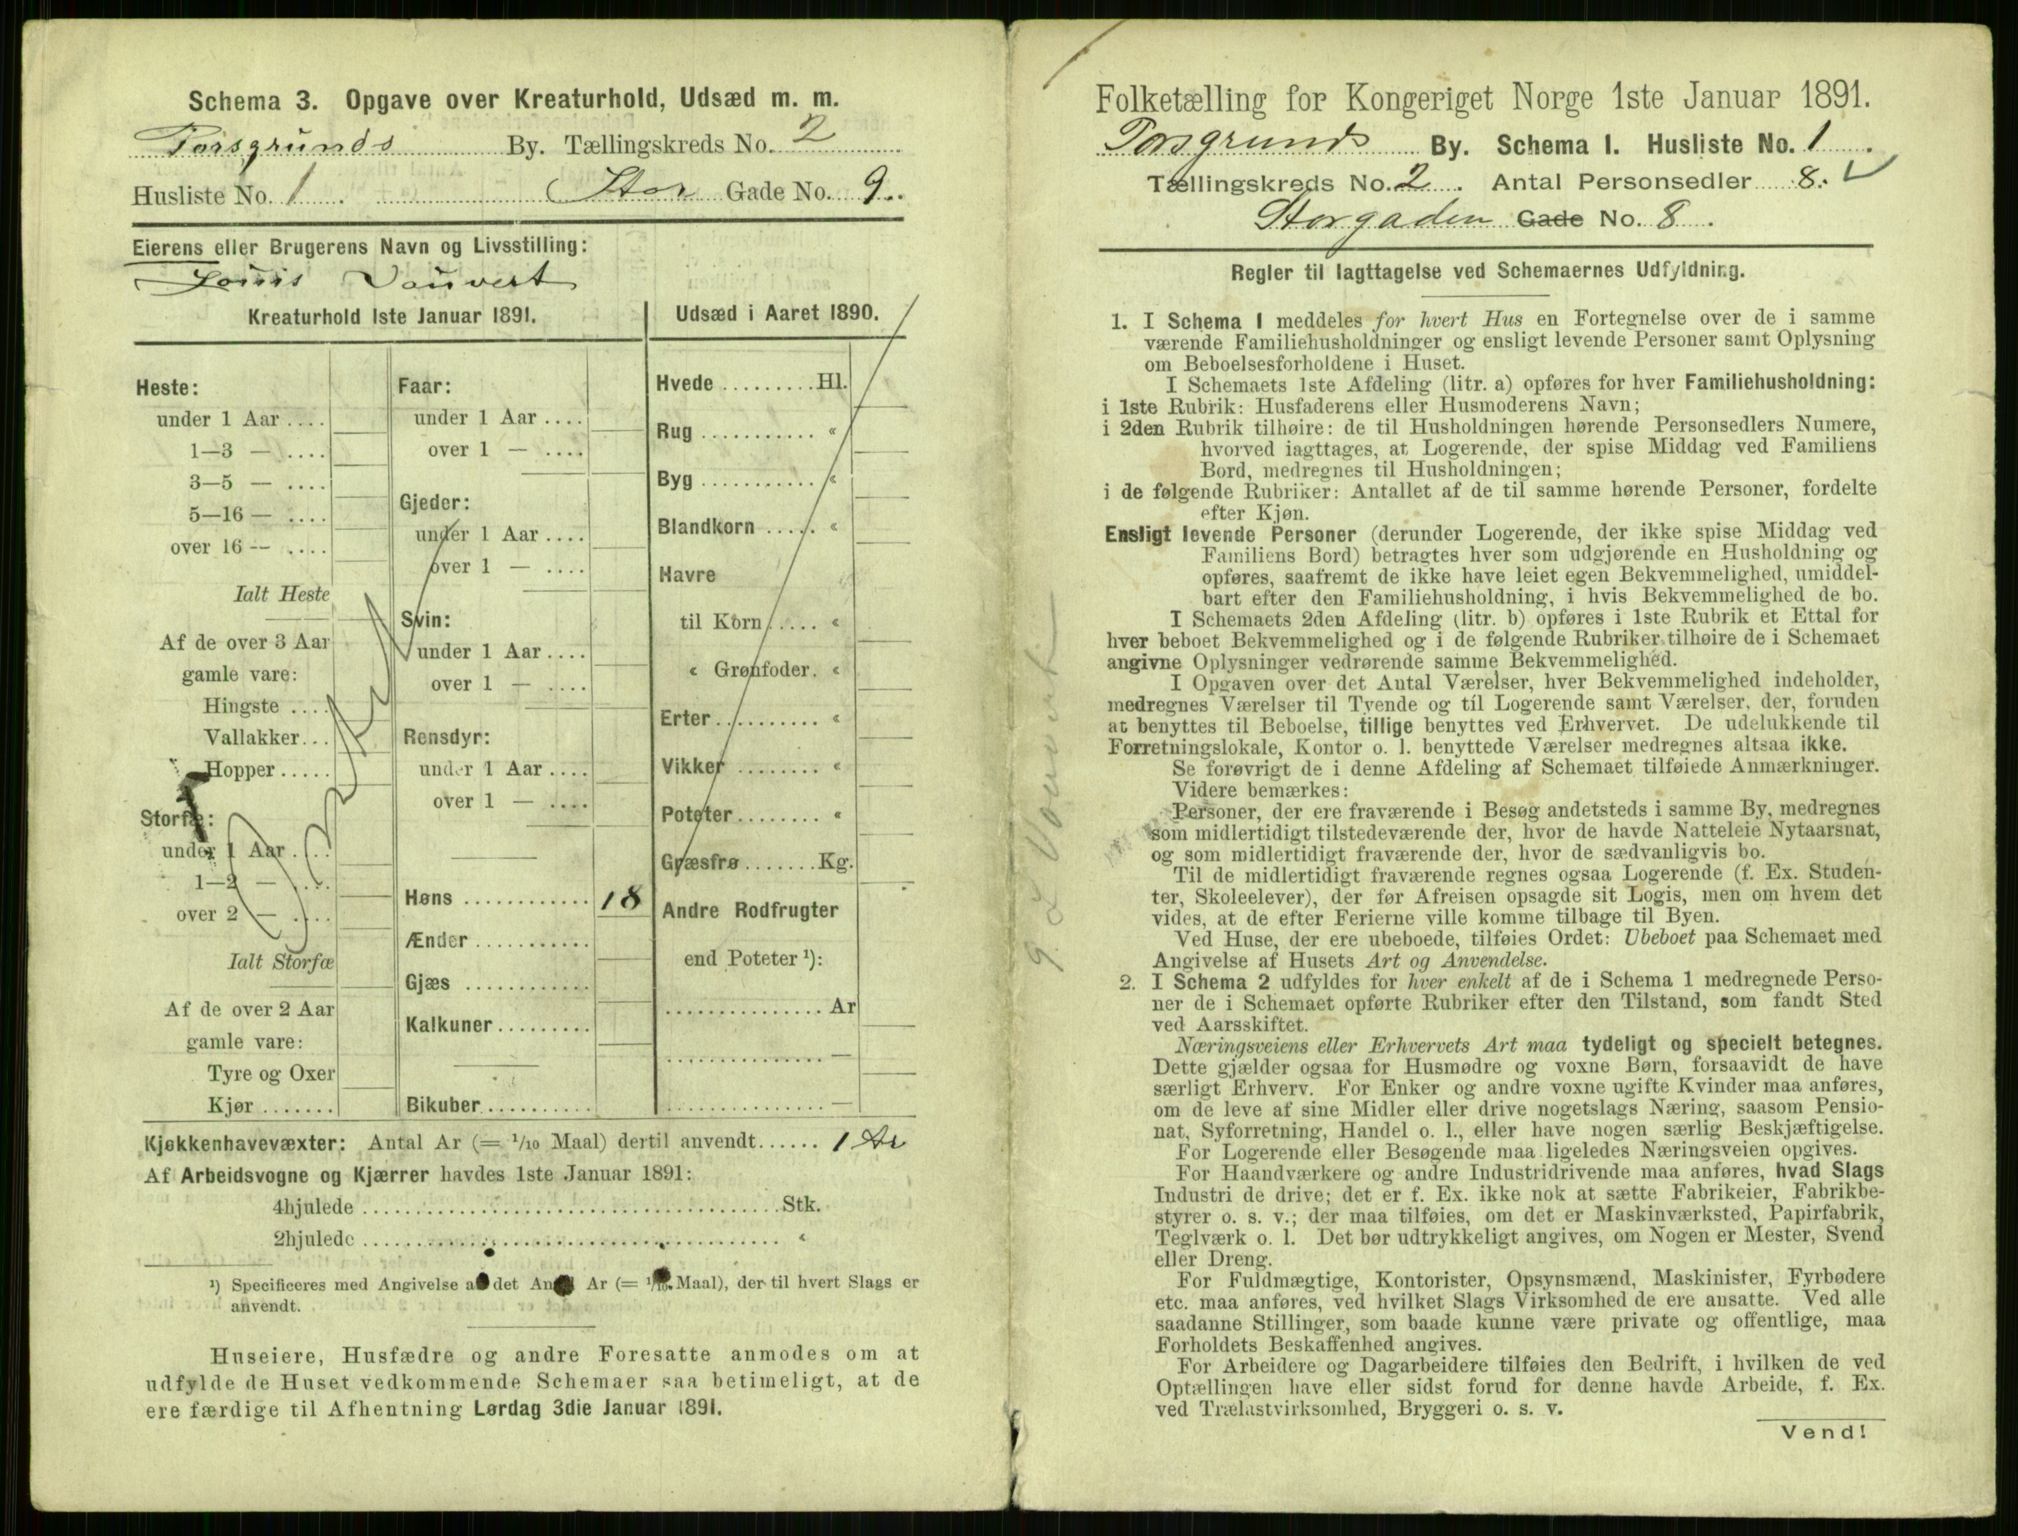 Schema 3. Opgave over Kreaturhold, Udsæd m. m.
Porsgrunds By. Tællingskreds No. 2
Husliste No. 1. Stor Gade No. 9.
Eierens eller Brugerens Navn og Livsstilling:
Louis Vauvert
Kreaturhold 1ste Januar 1891.
Heste:
under 1 Aar ....
1—3 — ....
3—5 — ....
5—16 — ....
over 16 — ....
Ialt Heste
Af de over 3 Aar
gamle vare:
Hingste ....
Vallakker...
Hopper.....
Storfæ:
under 1 Aar ....
1—2 — ....
over 2 — ....
Ialt Storfæ
Af de over 2 Aar
gamle vare:
Tyre og Oxer
Kjør .......
Faar:
under 1 Aar ....
over 1 — ....
Gjeder:
under 1 Aar ....
over 1 — ....
Svin:
under 1 Aar ....
over 1 — ....
Rensdyr:
under 1 Aar ....
over 1 — ....
Høns ............ 18
Ænder ...........
Gjæs ............
Kalkuner.........
Bikuber..........
Udsæd i Aaret 1890.
Hvede .........Hl.
Rug ........... «
Byg ........... «
Blandkorn ..... «
Havre
til Korn ..... «
« Grønfoder. «
Erter.......... «
Vikker ........ «
Poteter........ «
Græsfrø .......Kg.
Andre Rodfrugter
end Poteter ¹):
...............Ar
............... —
............... —
Kjøkkenhavevæxter: Antal Ar (= 1/10 Maal) dertil anvendt...... 1 Ar
Af Arbeidsvogne og Kjærrer havdes 1ste Januar 1891:
4hjulede ........................................Stk.
2hjulede ........................................ «
¹) Specificeres med Angivelse af det Antal Ar (= 1/10 Maal), der til hvert Slags er
anvendt.
Huseiere, Husfædre og andre Foresatte anmodes om at
udfylde de Huset vedkommende Schemaer saa betimeligt, at de
ere færdige til Afhentning Lørdag 3die Januar 1891.
Folketælling for Kongeriget Norge 1ste Januar 1891.
Porsgrunds By. Schema I. Husliste No. 1.
Tællingskreds No. 2. Antal Personsedler 8. ✓
Storgaden Gade No. 8.
Regler til Iagttagelse ved Schemaernes Udfyldning.
1. I Schema I meddeles for hvert Hus en Fortegnelse over de i samme
værende Familiehusholdninger og ensligt levende Personer samt Oplysning
om Beboelsesforholdene i Huset.
I Schemaets 1ste Afdeling (litr. a) opføres for hver Familiehusholdning:
i 1ste Rubrik: Husfaderens eller Husmoderens Navn;
i 2den Rubrik tilhøire: de til Husholdningen hørende Personsedlers Numere,
hvorved iagttages, at Logerende, der spise Middag ved Familiens
Bord, medregnes til Husholdningen;
i de følgende Rubriker: Antallet af de til samme hørende Personer, fordelte
efter Kjøn.
Ensligt levende Personer (derunder Logerende, der ikke spise Middag ved
Familiens Bord) betragtes hver som udgjørende en Husholdning og
opføres, saafremt de ikke have leiet egen Bekvemmelighed, umiddel-
bart efter den Familiehusholdning, i hvis Bekvemmelighed de bo.
I Schemaets 2den Afdeling (litr. b) opføres i 1ste Rubrik et Ettal for
hver beboet Bekvemmelighed og i de følgende Rubriker tilhøire de i Schemaet
angivne Oplysninger vedrørende samme Bekvemmelighed.
I Opgaven over det Antal Værelser, hver Bekvemmelighed indeholder,
medregnes Værelser til Tyende og til Logerende samt Værelser, der, foruden
at benyttes til Beboelse, tillige benyttes ved Erhvervet. De udelukkende til
Forretningslokale, Kontor o. l. benyttede Værelser medregnes altsaa ikke.
Se forøvrigt de i denne Afdeling af Schemaet tilføiede Anmærkninger.
Videre bemærkes:
Personer, der ere fraværende i Besøg andetsteds i samme By, medregnes
som midlertidigt tilstedeværende der, hvor de havde Natteleie Nytaarsnat,
og som midlertidigt fraværende der, hvor de sædvanligvis bo.
Til de midlertidigt fraværende regnes ogsaa Logerende (f. Ex. Studen-
ter, Skoleelever), der før Afreisen opsagde sit Logis, men om hvem det
vides, at de efter Ferierne ville komme tilbage til Byen.
Ved Huse, der ere ubeboede, tilføies Ordet: Ubeboet paa Schemaet med
Angivelse af Husets Art og Anvendelse.
2. I Schema 2 udfyldes for hver enkelt af de i Schema 1 medregnede Perso-
ner de i Schemaet opførte Rubriker efter den Tilstand, som fandt Sted
ved Aarsskiftet.
Næringsveiens eller Erhvervets Art maa tydeligt og specielt betegnes.
Dette gjælder ogsaa for Husmødre og voxne Børn, forsaavidt de have
særligt Erhverv. For Enker og andre voxne ugifte Kvinder maa anføres,
om de leve af sine Midler eller drive nogetslags Næring, saasom Pensio-
nat, Syforretning, Handel o. l., eller have nogen særlig Beskjæftigelse.
For Logerende eller Besøgende maa ligeledes Næringsveien opgives.
For Haandværkere og andre Industridrivende maa anføres, hvad Slags
Industri de drive; det er f. Ex. ikke nok at sætte Fabrikeier, Fabrikbe-
styrer o. s. v.; der maa tilføies, om det er Maskinværksted, Papirfabrik,
Teglværk o. l. Det bør udtrykkeligt angives, om Nogen er Mester, Svend
eller Dreng.
For Fuldmægtige, Kontorister, Opsynsmænd, Maskinister, Fyrbødere
etc. maa anføres, ved hvilket Slags Virksomhed de ere ansatte. Ved alle
saadanne Stillinger, som baade kunne være private og offentlige, maa
Forholdets Beskaffenhed angives.
For Arbeidere og Dagarbeidere tilføies den Bedrift, i hvilken de ved
Optællingen have eller sidst forud for denne havde Arbeide, f. Ex.
ved Trælastvirksomhed, Bryggeri o. s. v.
Vend!
9 L Vauvert